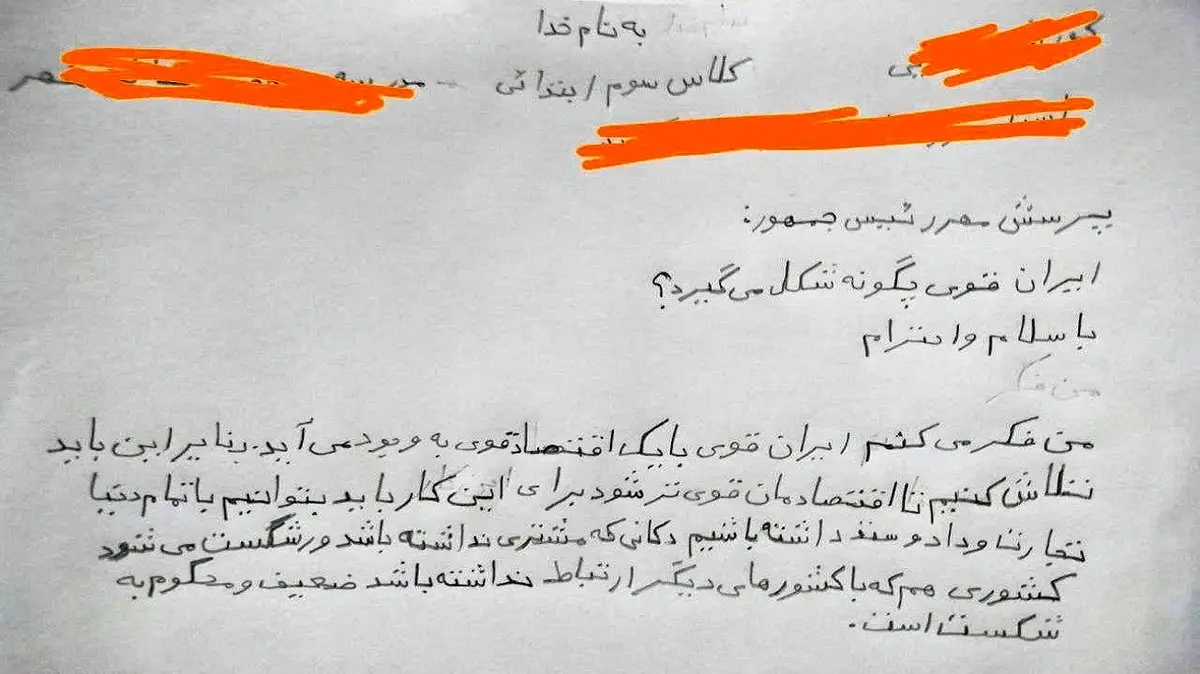 به نام خدا
کلاس سوم ابتدائی - مدرسه
پرسش مهر رئیس جمهور:
ایران قوی چگونه شکل می گیرد؟
با سلام و احترام
من فکر
من فکر می کنم ایران قوی با یک اقتصاد قوی به وجود می آید. بنابراین باید
تلاش کنیم تا اقتصادمان قوی تر شود برای این کار باید بتوانیم با تمام دنیا
تجارت و داد و ستد داشته باشیم دکانی که مشتری نداشته باشد ورشکست می شود
کشوری هم که با کشورهای دیگر ارتباط نداشته باشد ضعیف و محکوم به
شکست است.